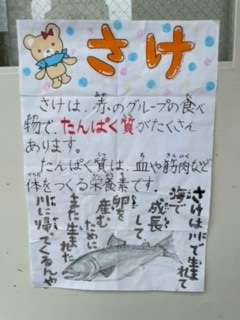 さけ
さけは、赤のグループの食べ
物で、たんぱく質がたくさん
あります。
たんぱく質は、血や筋肉など
体をつくる栄養素です。
さけは川で生まれて
海で
成長
して
卵を
産む
ために
また生まれた
川に帰ってくるんや